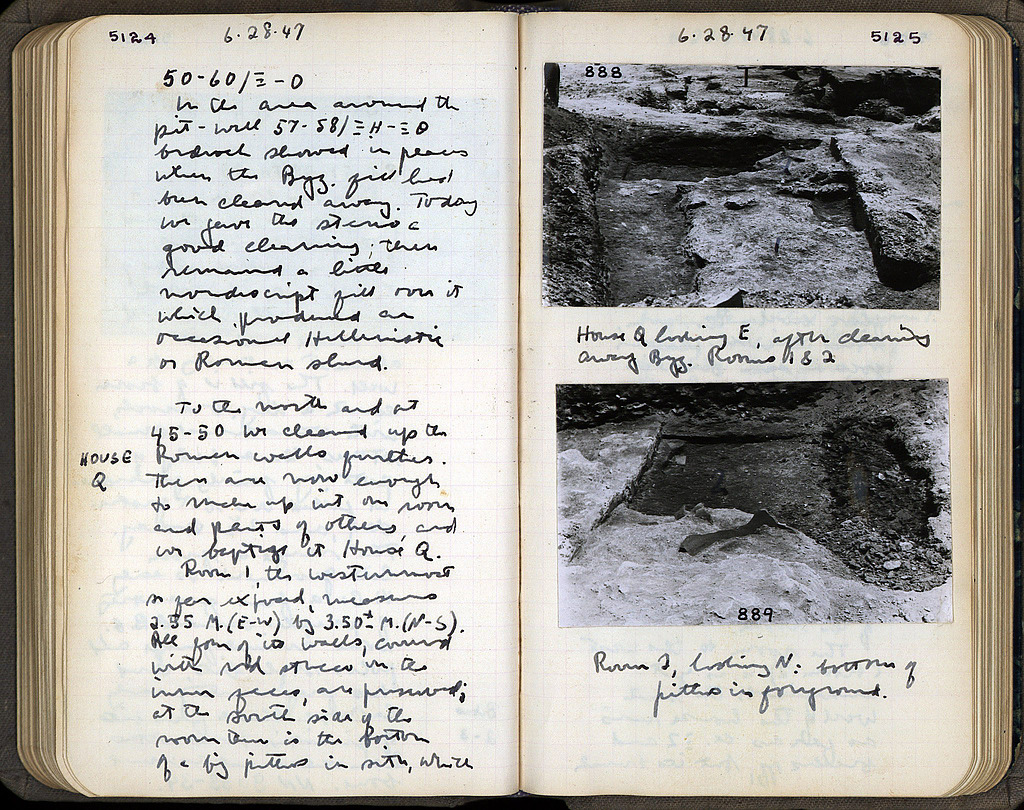 5124
6.28.47
50-60/Ξ-Ο
In the area around the
pit-well 57-58/ΞΗ-ΞΘ
bedrock showed in places
when the Byz. fill had
been cleared away. Today
we gave the stereo a
good cleaning; there
remained a little
nondescript fill over it
which produced an
occasional Hellenistic
or Roman sherd.
To the north and at
45-50 we cleaned up the
HOUSE
Q
Roman walls further.
There are now enough
to make up into one room
and parts of others, and
we baptize it House Q.
Room 1, the westernmost
so far exposed, measures
2.55 M.(E-W) by 3.50± M.(N-S).
All four of its walls, covered
with red stucco on the
inner faces, are preserved;
at the south side of the
room there is the bottom
of a big pithos in situ, which
6.28.47
5125
888
House Q looking E, after clearing
away Byz. Rooms 1 & 2
889
Room 1, looking N: bottom of
pithos in foreground.